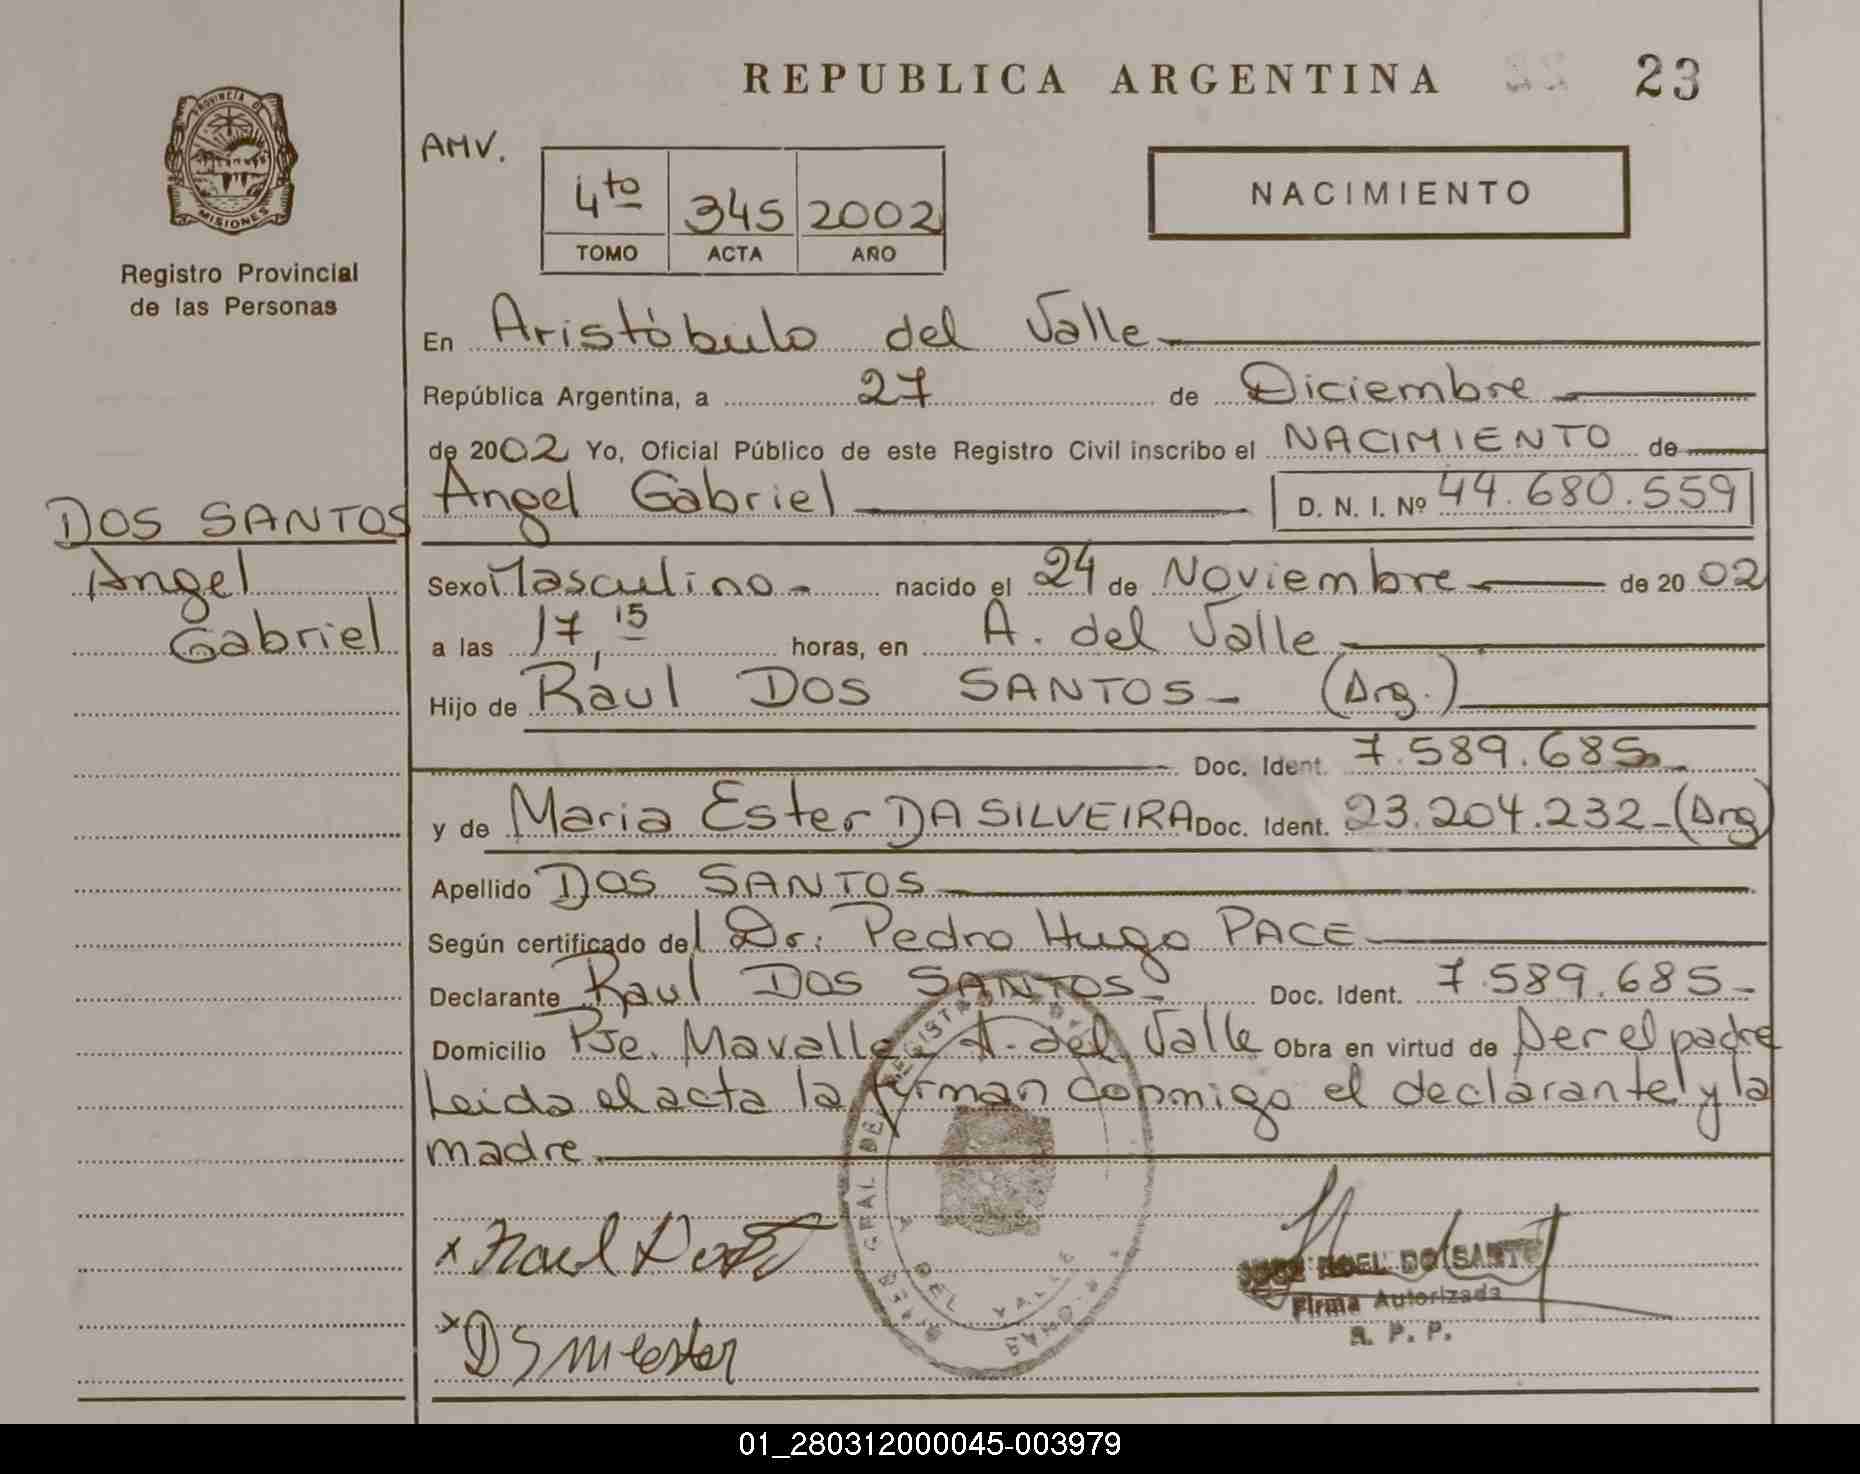 REPUBLICA ARGENTINA 23
PROVINCIA DE
MISIONES
Registro Provincial
de las Personas
AMV.
4to 345 2002
TOMO ACTA AÑO
NACIMIENTO
En Aristóbulo del Valle
República Argentina, a 27 de Diciembre
de 2002 Yo, Oficial Público de este Registro Civil inscribo el NACIMIENTO de
DOS SANTOS
Angel
Gabriel
Angel Gabriel D. N. I. Nº 44.680.559
Sexo Masculino - nacido el 24 de Noviembre de 20 02
a las 17,15 horas, en A. del Valle
Hijo de Raul DOS SANTOS - (Arg.)
Doc. Ident. 7.589.685
y de Maria Ester DA SILVEIRA Doc. Ident. 23.204.232 - (Arg)
Apellido DOS SANTOS
Según certificado del Dr. Pedro Hugo PACE
Declarante Raul DOS SANTOS - Doc. Ident. 7.589.685 -
Domicilio Pje. Mavalle - A. del Valle Obra en virtud de Ser el padre
Leida el acta la firman conmigo el declarante y la
madre
x Raul
x
DEL VALLE
Firma Autorizada
R. P. P.
01_280312000045-003979